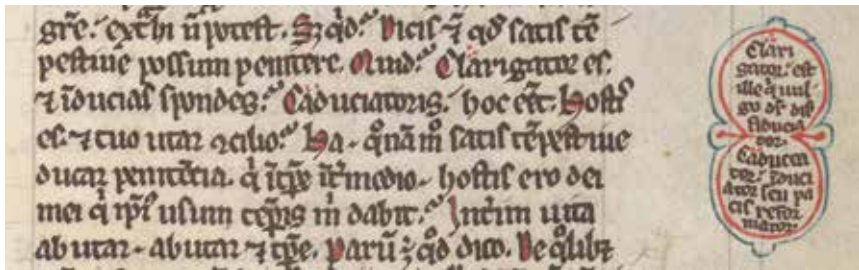 gr̃e. ext͛hi n̄ potest. Sȝ qd̾. Dicis ⁊ qd̾ satis tẽ
pestiue possum penitere. Quid.
Clarigator es.
⁊ īducias spondes. Caduciatoris. hoc est. Hostis
es. ⁊ tuo utar ↄcilio. Ha. q̊nā m̊ satis tēpestiue
ducar penitẽcia. hostis ero dei
mei usum tẽpr̃is m̄ dabit. Int͛im uita
abutar. abutar ⁊ tp̃e. Parū ȝ qd̾ dico. De q̊libȝ
Clari
gator. est
ille q̇ uul
go dr̄ dif
fiducia
tor.
Caducia
tor. īduci
ator seu pa
cis refor
mator.